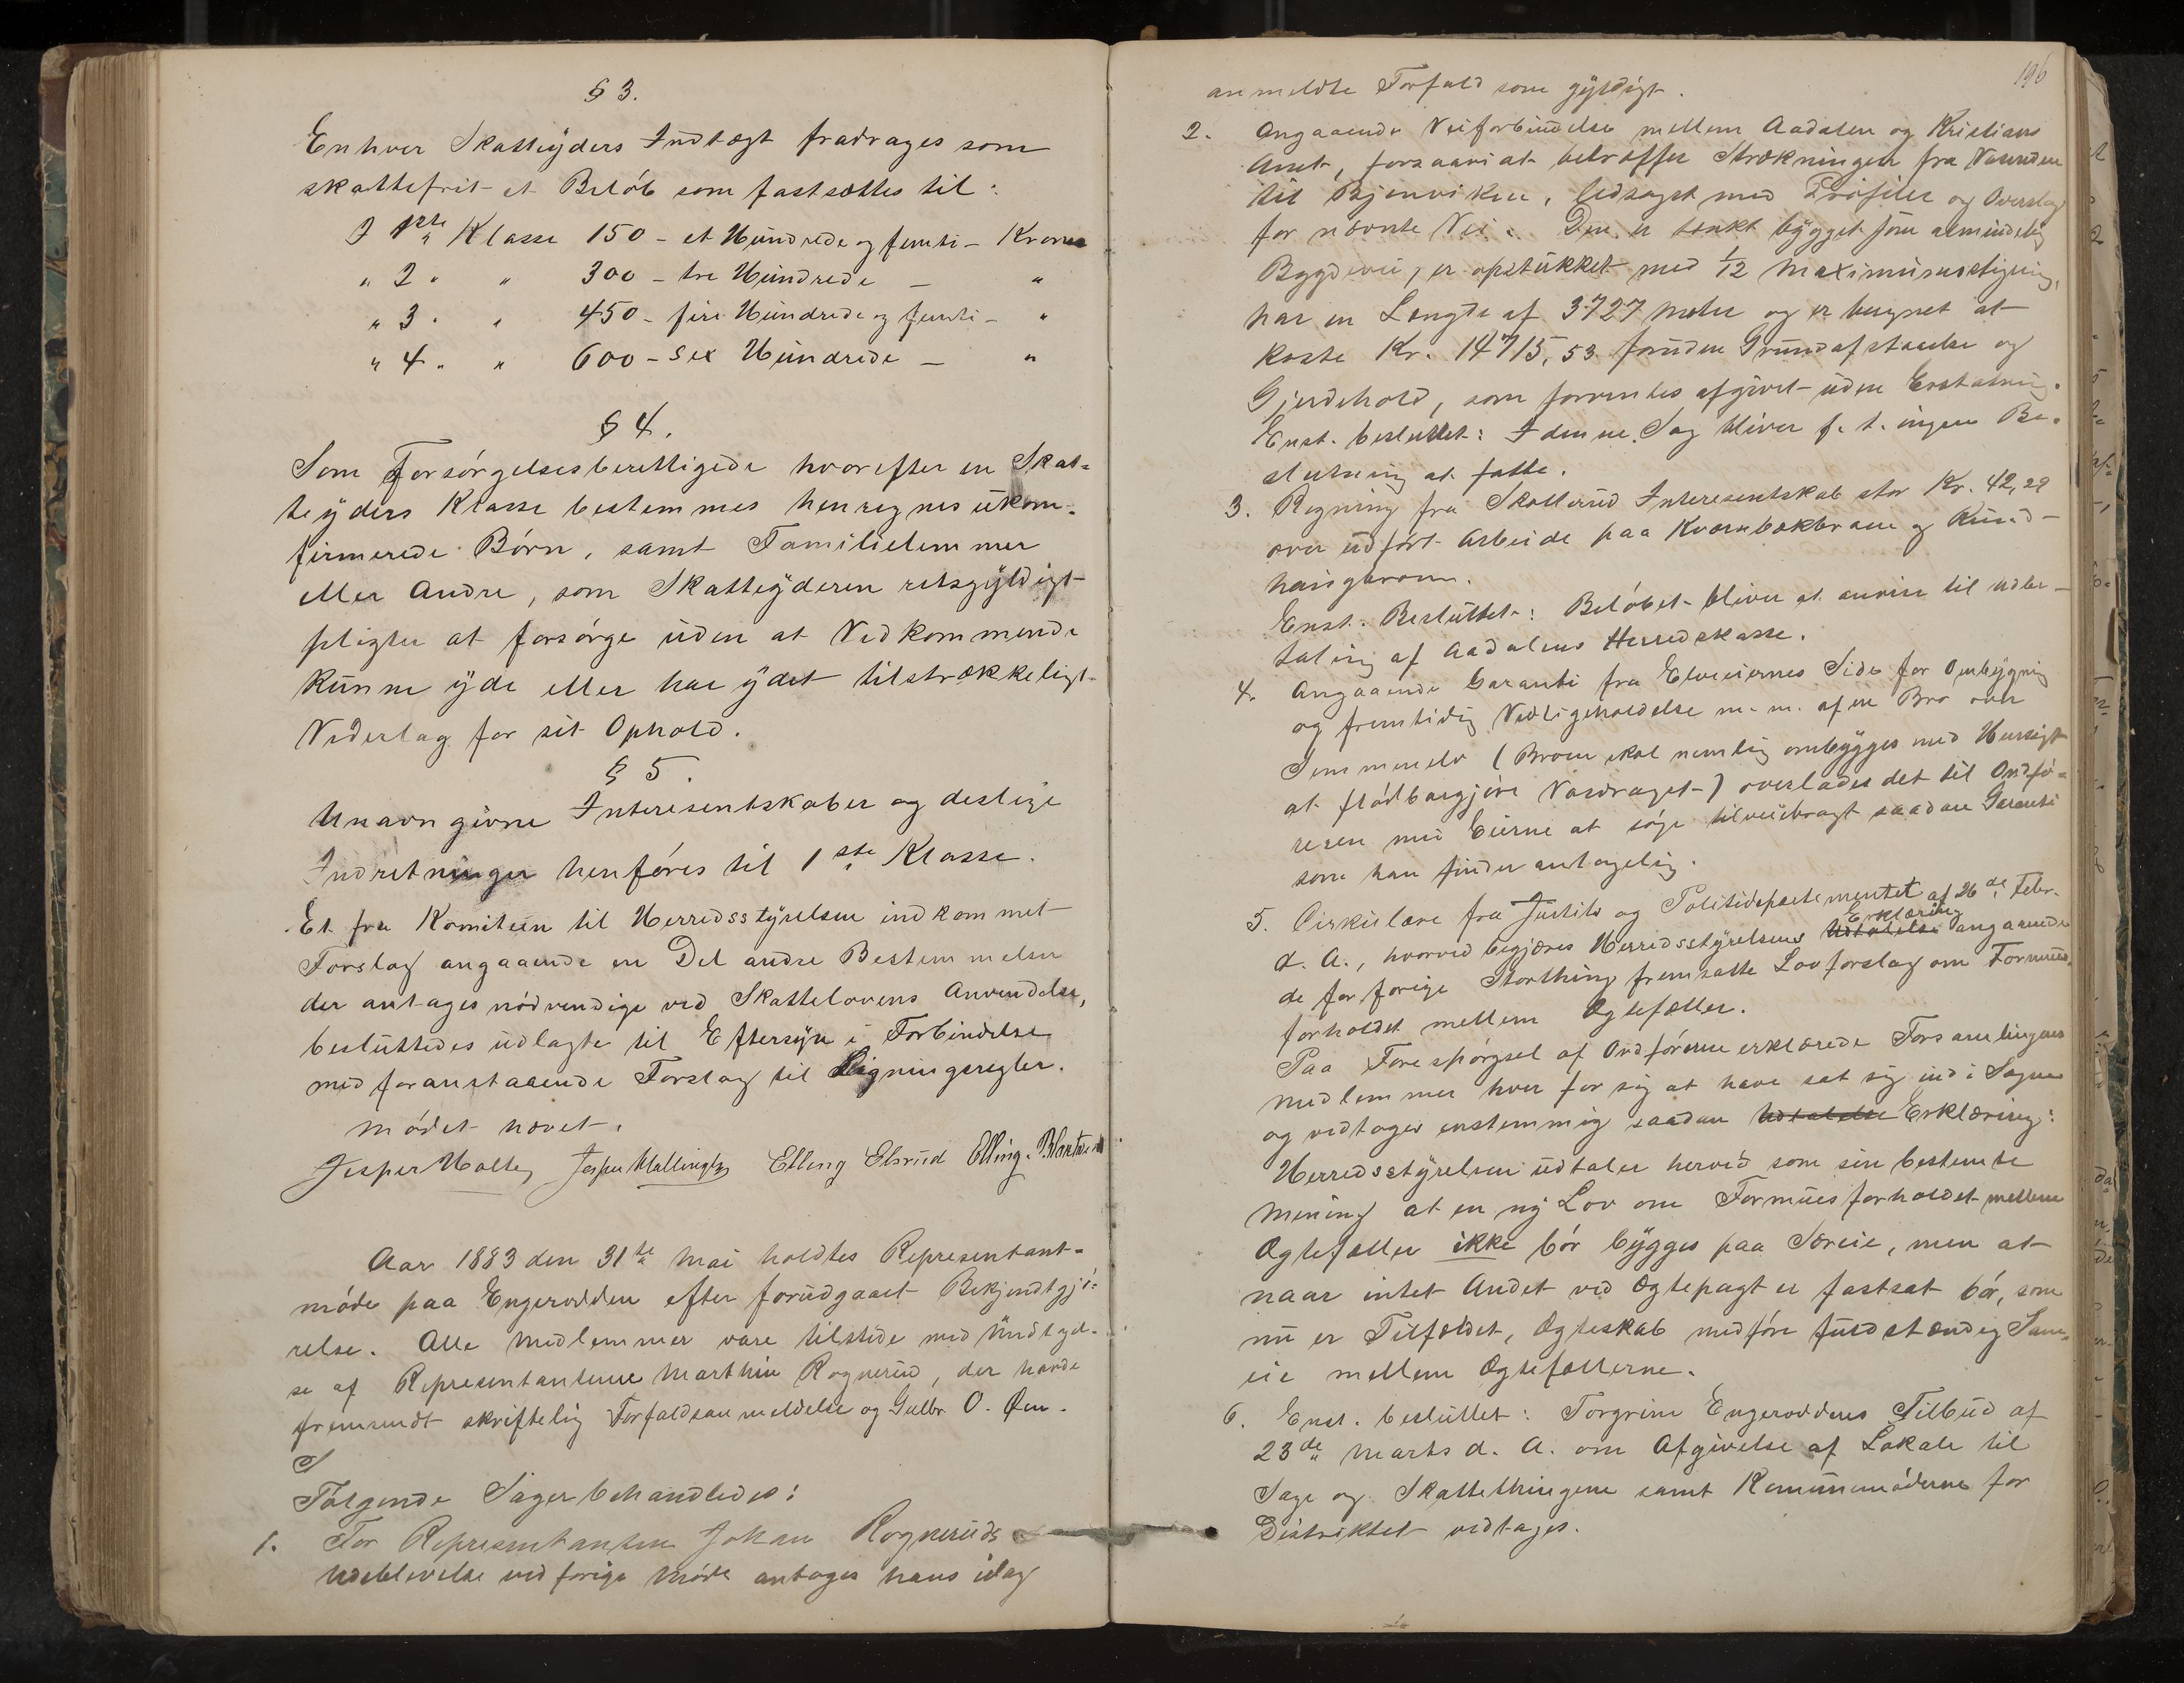 § 3.
Enhver Skatteyders Indtægt fradrages som
skattefrit et Beløb som fastsættes til:
I 1ste Klasse 150 - et Hundrede og femti - Kroner
" 2 " " 300 - tre Hundrede - "
" 3 " " 450 - fire Hundrede og femti - "
" 4 " " 600 - sex Hundrede - "
§ 4.
Som Forsørgelsesberettigede hvorefter en Skat-
teyders Klasse bestemmes henregnes ukon-
firmerede Børn, samt Familielemmer
eller Andre, som Skatteyderen retsgyldigt
pligter at forsørge uden at Vedkommende
kunne yde eller har ydet tilstrækkeligt
Vederlag for sit Ophold.
§ 5.
Unavngivne Interesentskaber og deslige
Indretninger henføres til 1ste Klasse.
Et fra Komiteen til Herredsstyrelsen indkommet
Forslag angaaende en Del andre Bestemmelser
der antages nødvendige ved Skattelovens Anvendelse,
besluttedes udlagte til Eftersyn i Forbindelse
med foranstaaende Forslag til Ligningsregler.
Mødet hævet.
Jesper Holte, Elling Elsrud Elling
Aar 1883 den 31te Mai holdtes Representant-
møde paa Engerodden efter forudgaaet Bekjendtgjø-
relse. Alle Medlemmer vare tilstede med Undtagel-
se af Representanterne Marthin Rognerud, der havde
fremsendt skriftelig Forfaldsanmeldelse og Gulbr. O. Øen.
Følgende Sager behandledes:
1. For Representanten Johan Rogneruds
Udeblevelse ved forige Møde antages hans idag
196
anmeldte Forfald som gyldigt.
2. Angaaende Veiforbindelse mellem Aadalen og Kristians
Amt, forsaavidt betræffer Strækningen fra
til Bjonviken, ledsaget med Profiler og Overslag
for nævnte Vei. Den er tænkt bygget som almindelig
Bygdevei, er opstukket med 1/12 Maximumsstigning,
har en Længde af 3727 Meter og er beregnet at
koste Kr. 14715,53 foruden Grundafstaaelse og
Gjerdehold, som forventes afgivet uden Erstatning.
Enst. besluttet: I denne Sag bliver f. t. ingen Be-
slutning at fatte.
3. Regning fra Skollerud Interesentskab stor Kr. 42,29
over udført Arbeide paa Kværnbækbroen og Rund-
haugbroen.
Enst. Besluttet: Beløbet bliver at anvise til Udbe-
taling af Aadalens Herredskasse.
4. Angaaende Garanti fra Elveeiernes Side for Ombygning
og fremtidig Vedligeholdelse m. m. af en Bro over
Sommenelv (Broen skal nemlig ombygges med Hensigt
at flødbargjøre Vasdraget) overlades det til Ordfø-
reren med Eierne at søge tilveiebragt saadan Garanti
som han finder antagelig.
5. Cirkulære fra Justits og Politidepartementet af 26de Febr.
d. A., hvorved begjæres Herredsstyrelsens Udtalelse Erklæring angaaende
de for forige Storthing fremsatte Lovforslag om Formues-
forholdet mellem Ægtefæller.
Paa Forespørgsel af Ordføreren erklærede Forsamlingens
Medlemmer hver for sig at have sat sig ind i Sagen
og vedtoges enstemmig saadan Udtalelse Erklæring:
Herredsstyrelsen udtaler herved som sin bestemte
Mening at en ny Lov om Formuesforholdet mellem
Ægtefæller ikke bør bygges paa Særeie, men at
naar intet Andet ved Ægtepagt er fastsat bør, som
nu er Tilfældet, Ægteskab medføre fuldstændig Sam-
eie mellem Ægtefællerne.
6. Enst. besluttet: Torgrim Engeroddens Tilbud af
23de Marts d. A. om Afgivelse af Lokale til
Sage og Skattethingene samt Kommunemøderne for
Distriktet vedtages.